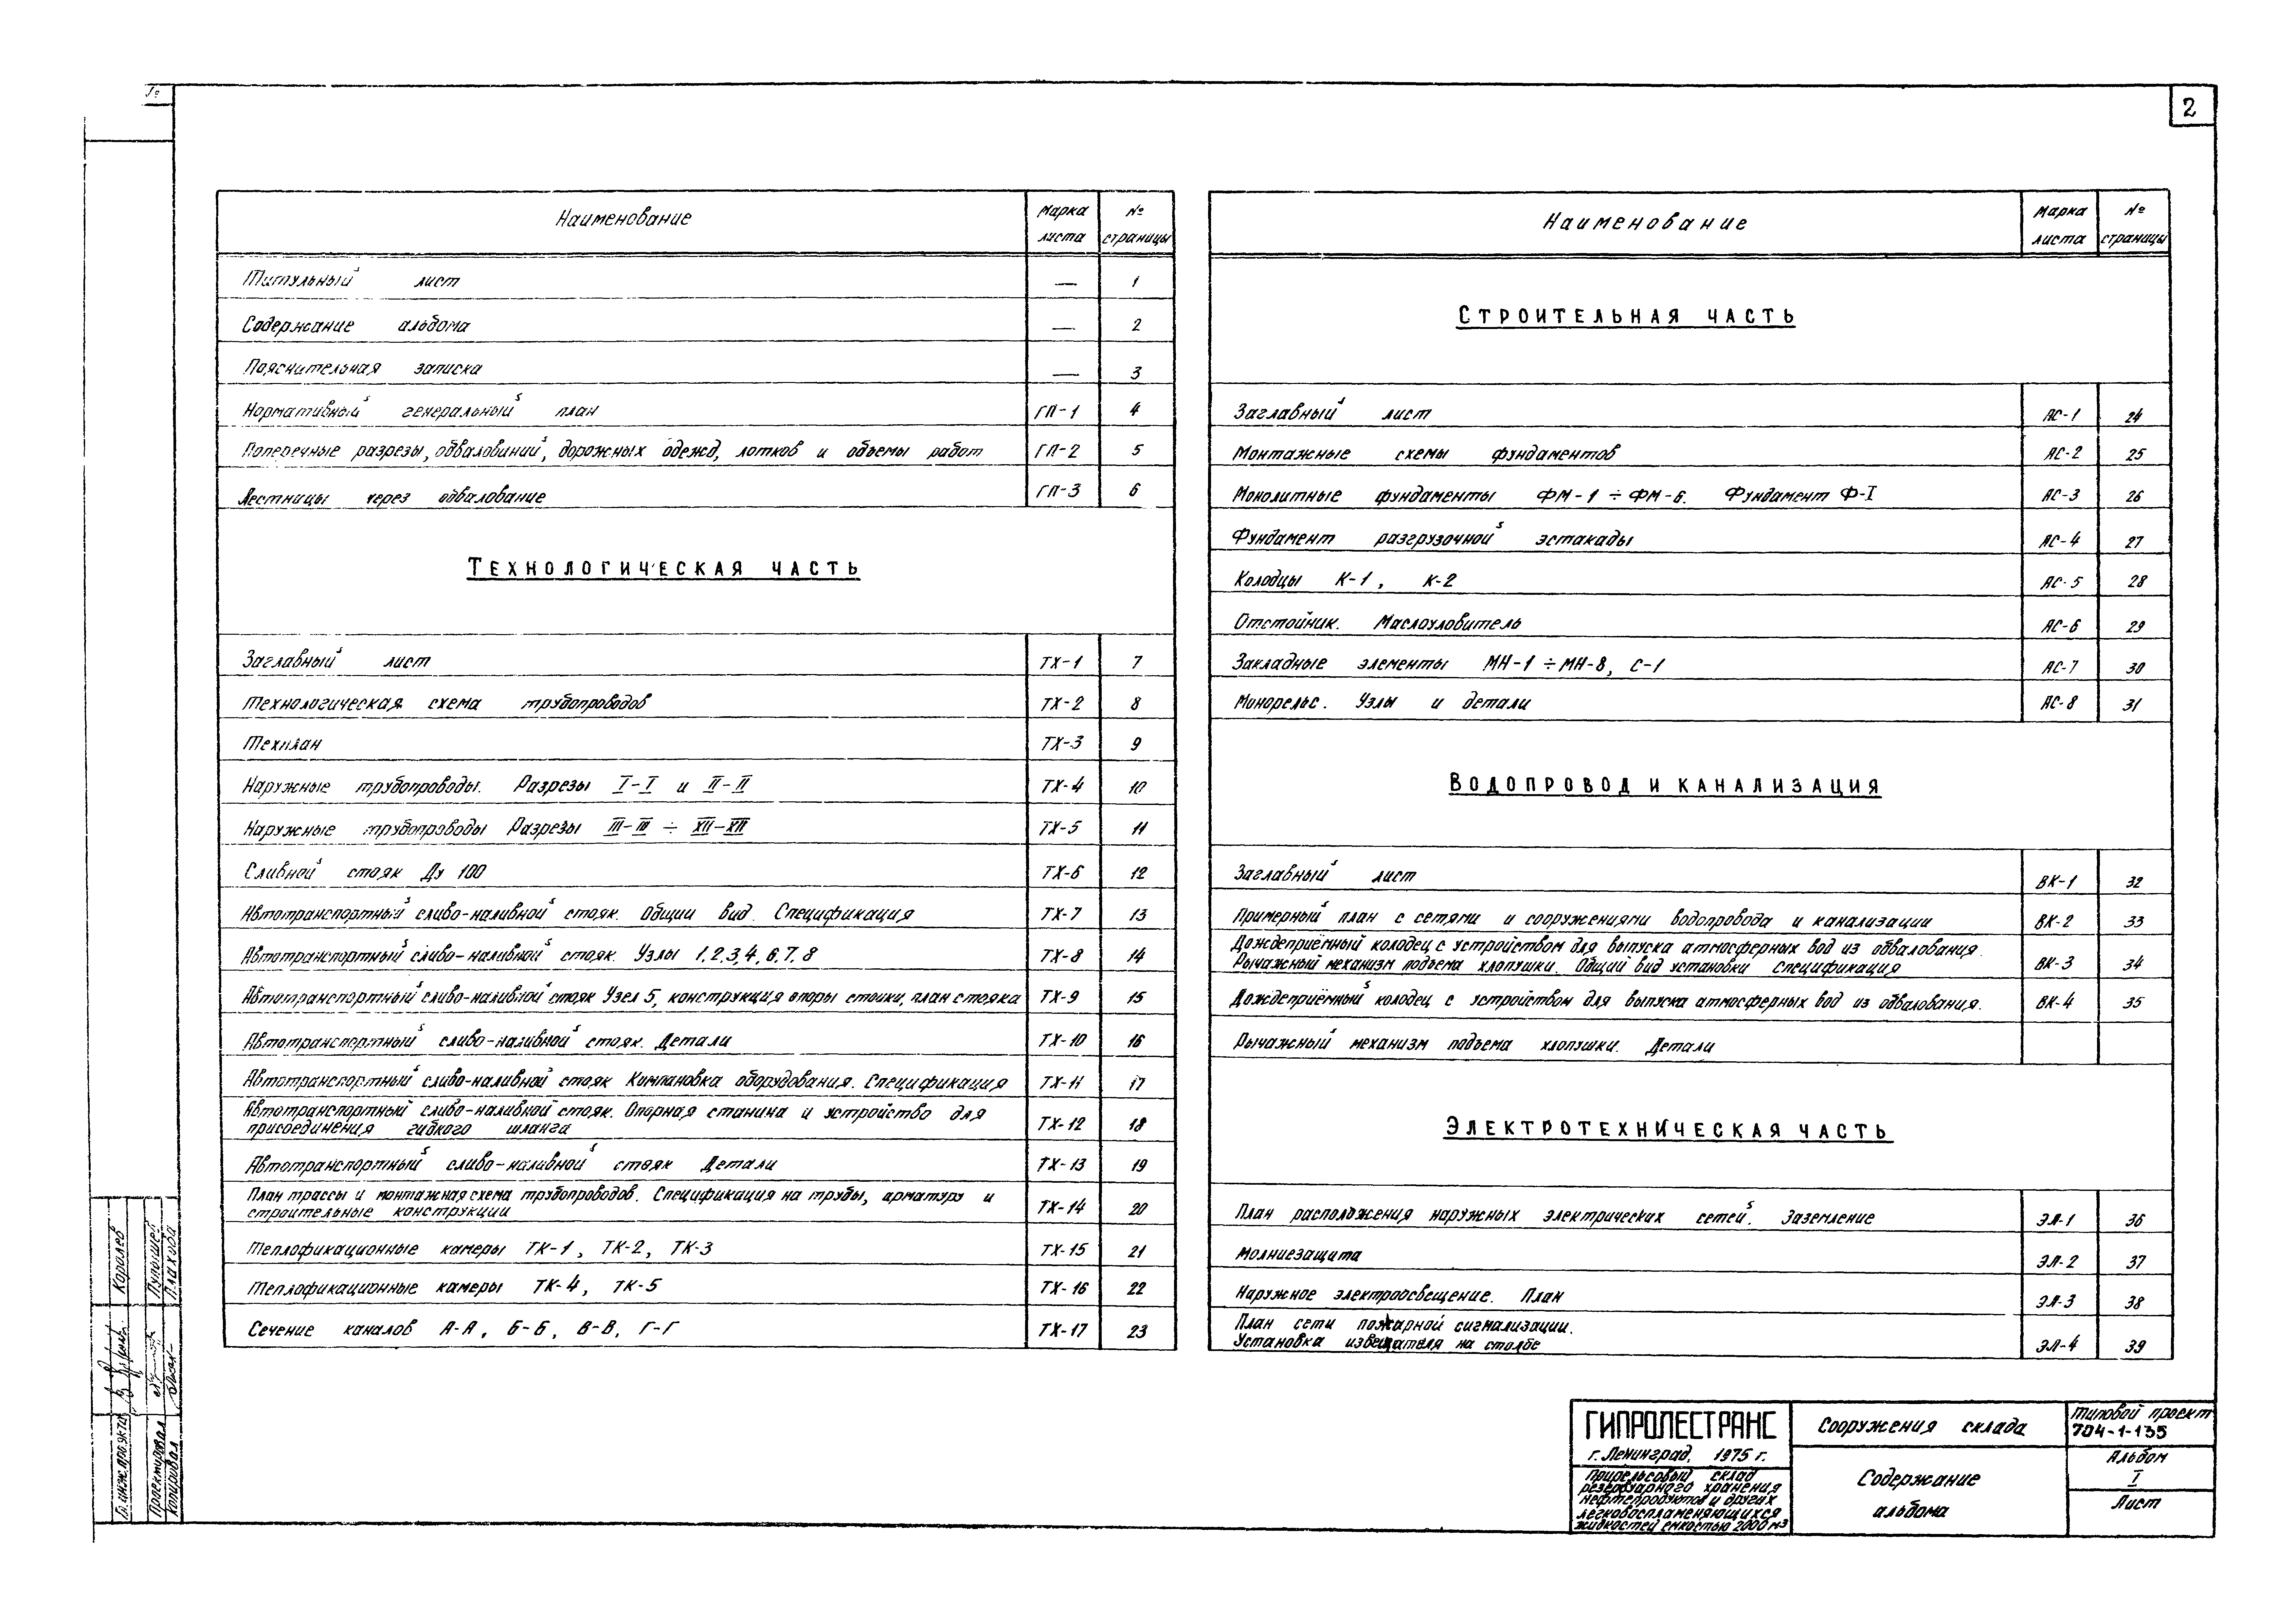 2
Наименование Марка листа № страницы
Титульный лист — 1
Содержание альбома — 2
Пояснительная записка — 3
Нормативный генеральный план ГП-1 4
Поперечные разрезы, обваловиний, дорожных одежд, лотков и объемы работ ГП-2 5
Лестницы через обвалование ГП-3 6
Технологическая часть
Заглавный лист ТХ-1 7
Технологическая схема трубопроводов ТХ-2 8
Техплан ТХ-3 9
Наружные трубопроводы. Разрезы I-I и II-II ТХ-4 10
Наружные трубопроводы Разрезы III-III ÷ XII-XII ТХ-5 11
Сливной стояк Ду 100 ТХ-6 12
Автотранспортный сливо-наливной стояк. Общии вид. Спецификация ТХ-7 13
Автотранспортный сливо-наливной стояк. Узлы 1,2,3,4,6,7,8 ТХ-8 14
Автотранспортный сливо-наливной стояк Узел 5, конструкция опоры стойки, план стояка ТХ-9 15
Автотранспортный сливо-наливной стояк. Детали ТХ-10 16
Автотранспортный сливо-наливной стояк Компановка оборудования. Спецификация ТХ-11 17
Автотранспортный сливо-наливной стояк. Опорная станина и устройство для
присоединения гибкого шланга ТХ-12 18
Автотранспортный сливо-наливной стояк Детали ТХ-13 19
План трассы и монтажная схема трубопроводов. Спецификация на трубы, арматуру и
строительные конструкции ТХ-14 20
Теплофикационные камеры ТК-1, ТК-2, ТК-3 ТХ-15 21
Теплофикационные камеры ТК-4, ТК-5 ТХ-16 22
Сечение каналов А-А, Б-Б, В-В, Г-Г ТХ-17 23
Наименование Марка листа № страницы
Строительная часть
Заглавный лист АС-1 24
Монтажные схемы фундаментов АС-2 25
Монолитные фундаменты ФМ-1 ÷ ФМ-6. Фундамент Ф-I АС-3 26
Фундамент разгрузочной эстакады АС-4 27
Колодцы К-1, К-2 АС-5 28
Отстойник. Маслоуловитель АС-6 29
Закладные элементы МН-1 ÷ МН-8, С-1 АС-7 30
Монорельс. Узлы и детали АС-8 31
Водопровод и канализация
Заглавный лист ВК-1 32
Примерный план с сетями и сооружениями водопровода и канализации ВК-2 33
Дождеприёмный колодец с устройством для выпуска атмосферных вод из обвалования.
Рычажный механизм подъема хлопушки. Общий вид установки Спецификация ВК-3 34
Дождеприёмный колодец с устройством для выпуска атмосферных вод из обвалования. ВК-4 35
Рычажный механизм подъема хлопушки. Детали
Электротехническая часть
План расположения наружных электрических сетей. Заземление ЭЛ-1 36
Молниезащита ЭЛ-2 37
Наружное электроосвещение. План ЭЛ-3 38
План сети пожарной сигнализации.
Установка извещателя на столбе ЭЛ-4 39
ГИПРОЛЕСТРАНС
г. Ленинград, 1975 г.
Прирельсовый склад
резервуарного хранения
нефтепродуктов и других
легковоспламеняющихся
жидкостей емкостью 2000 м³
Сооружения склада
Содержание
альбома
Типовой проект
704-1-135
Альбом
I
Лист
Гл. инж. проекта Королев
Проектировал Пупышев
Копировал Плахива